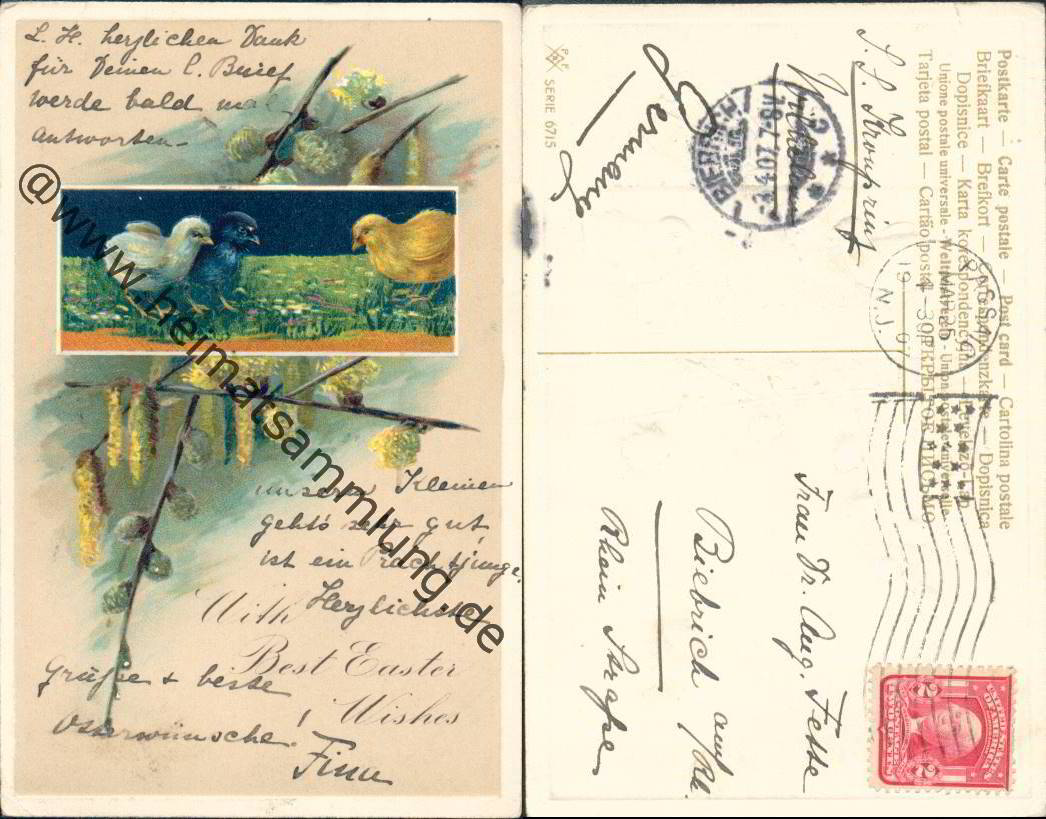 L. H. herzlichen Dank
für Deinen l. Brief
werde bald mal
antworten -
@www.heimatsammlung.de
unserm Kleinen
geht's sehr gut,
ist ein Prachtjunge.
Herzlichste
With
Best Easter
Wishes
Grüße & beste
Osterwünsche.
Fina
Postkarte — Carte postale — Post card — Cartolina postale
Briefkaart — Brefkort — Dopisnica
Dopisnice — Karta korespondencyjna
Unione postale universale - Weltpostverein - Union postale universelle
Tarjeta postal — Cartão postal
SERIE 6715
S. S. Kronprinz
Wilhelm
Germany
BIEBRICH
3.4.07 7-8V
MAR 25
4-30P
1907
N.J.
Frau Dr. Aug. Fette
Biebrich am/Rh.
Rhein Straße
2 2